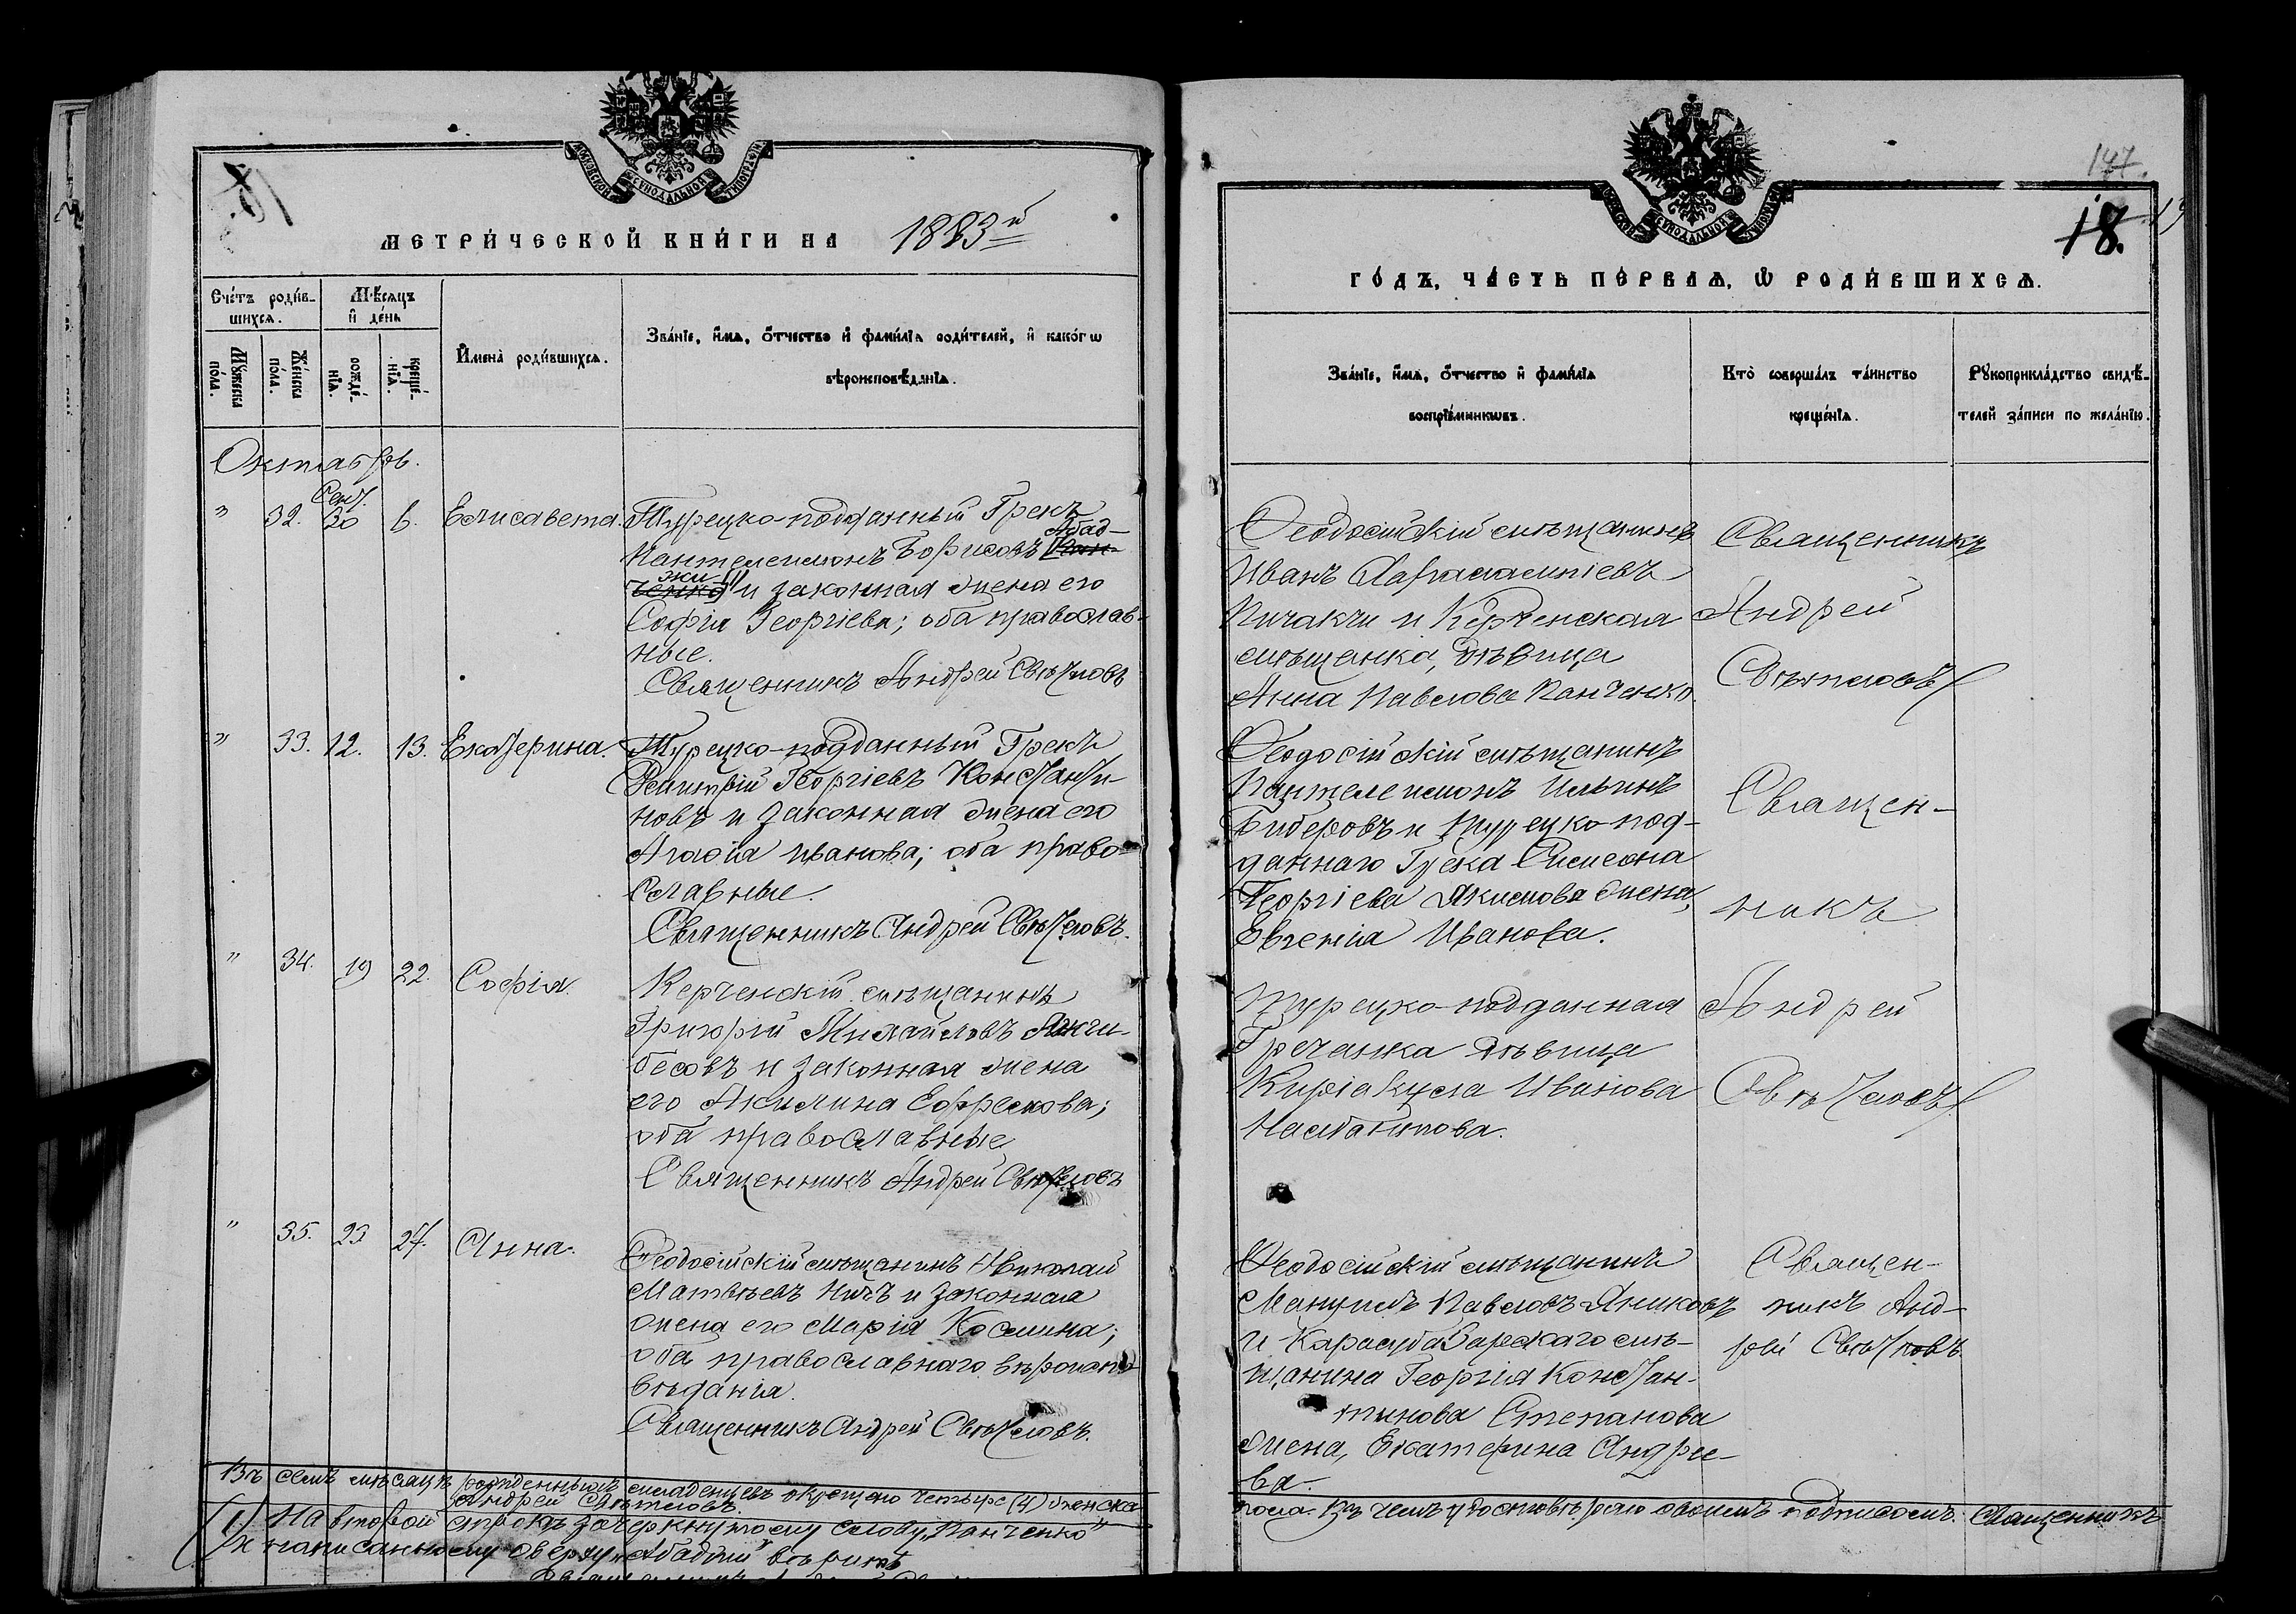 МОСКОВСКОЙ СѴНОДАЛЬНОЙ ТИПОГРАФІИ
МЕТРИ́ЧЕСКОЙ КНИ́ГИ НА 1883й
Сче́тъ роди́в-
шихсѧ.
Мѣ́сѧцъ
и҆ де́нь
Мꙋ́жеска
по́ла.
Же́нска
по́ла.
рожде́-
нїѧ.
креще́-
нїѧ.
И҆мена̀ роди́вшихсѧ.
Зва́нїе, и҆́мѧ, ѻ҆́тчество и҆ фами́лїѧ роди́телей, и҆ како́гѡ
вѣроисповѣ́данїѧ.
Октябрь.
" 32. Сент. 30 6. Елисавета.
Турецко-подданный Грекъ
Абад-
Пантелеимонъ Борисовъ Пан-
жи (1)
ченко и законная жена его
Софія Георгіева; оба православ-
ные.
Священникъ Андрей Свѣтловъ
" 33. 12. 13. Екатерина.
Турецко-подданный Грекъ
Димитрій Георгіевъ Константи-
новъ и законная жена его
Агафія Иванова; оба право-
славные.
Священникъ Андрей Свѣтловъ.
" 34. 19 22. Софія.
Керченскій мѣщанинъ
Григорій Михайловъ
бесовъ и законная жена
его Акилина Ефремова;
оба православные
Священникъ Андрей Свѣтловъ
" 35. 23 27. Анна.
Ѳеодосійскій мѣщанинъ Николай
Матвѣевъ и законная
жена его Марія Космина;
оба православнаго вѣроиспо-
вѣданія.
Священникъ Андрей Свѣтловъ.
Въ семъ мѣсяцѣ рожденныхъ младенцевъ окрещено четыре (4) женска
Андрей Свѣтловъ.
(1) На второй строкѣ зачеркнутому слову „Панченко"
и написанному сверху „Абаджи" вѣрить
147.
18. 19
МОСКОВСКОЙ СѴНОДАЛЬНОЙ ТИПОГРАФІИ
ГО́ДЪ, ЧА́СТЬ ПЕ́РВАѦ, Ѡ҆ РОДИ́ВШИХСѦ.
Зва́нїе, и҆́мѧ, ѻ҆́тчество и҆ фами́лїѧ
воспрїе́мникѡвъ.
Кто̀ соверша́лъ та́инство
креще́нїѧ.
Рꙋкоприкла́дство свидѣ́-
телей за́писи по жела́нїю.
Ѳеодосійскій мѣщанинъ
Иванъ Харалампіевъ
Пичакчи и Керченская
мѣщанка, дѣвица
Анна Павлова Панченко.
Священникъ
Андрей
Свѣтловъ
Ѳеодосійскій мѣщанинъ
Пантелеимонъ Ильинъ
Биберовъ и турецко-под-
даннаго Грека Симеона
Георгіева Якимова жена,
Евгенія Иванова.
Священ-
никъ
Турецко-подданная
Гречанка дѣвица
Киріакула Иванова
Андрей
Свѣтловъ
Ѳеодосійскій мѣщанинъ
Мануилъ Павловъ Яниковъ
и Карасубазарскаго мѣ-
щанина Георгія Констан-
тинова Степанова
жена, Екатерина Андрее-
ва.
Священ-
никъ Анд-
рей Свѣтловъ.
пола. Въ чемъ удостовѣряю своимъ подписомъ. Священникъ